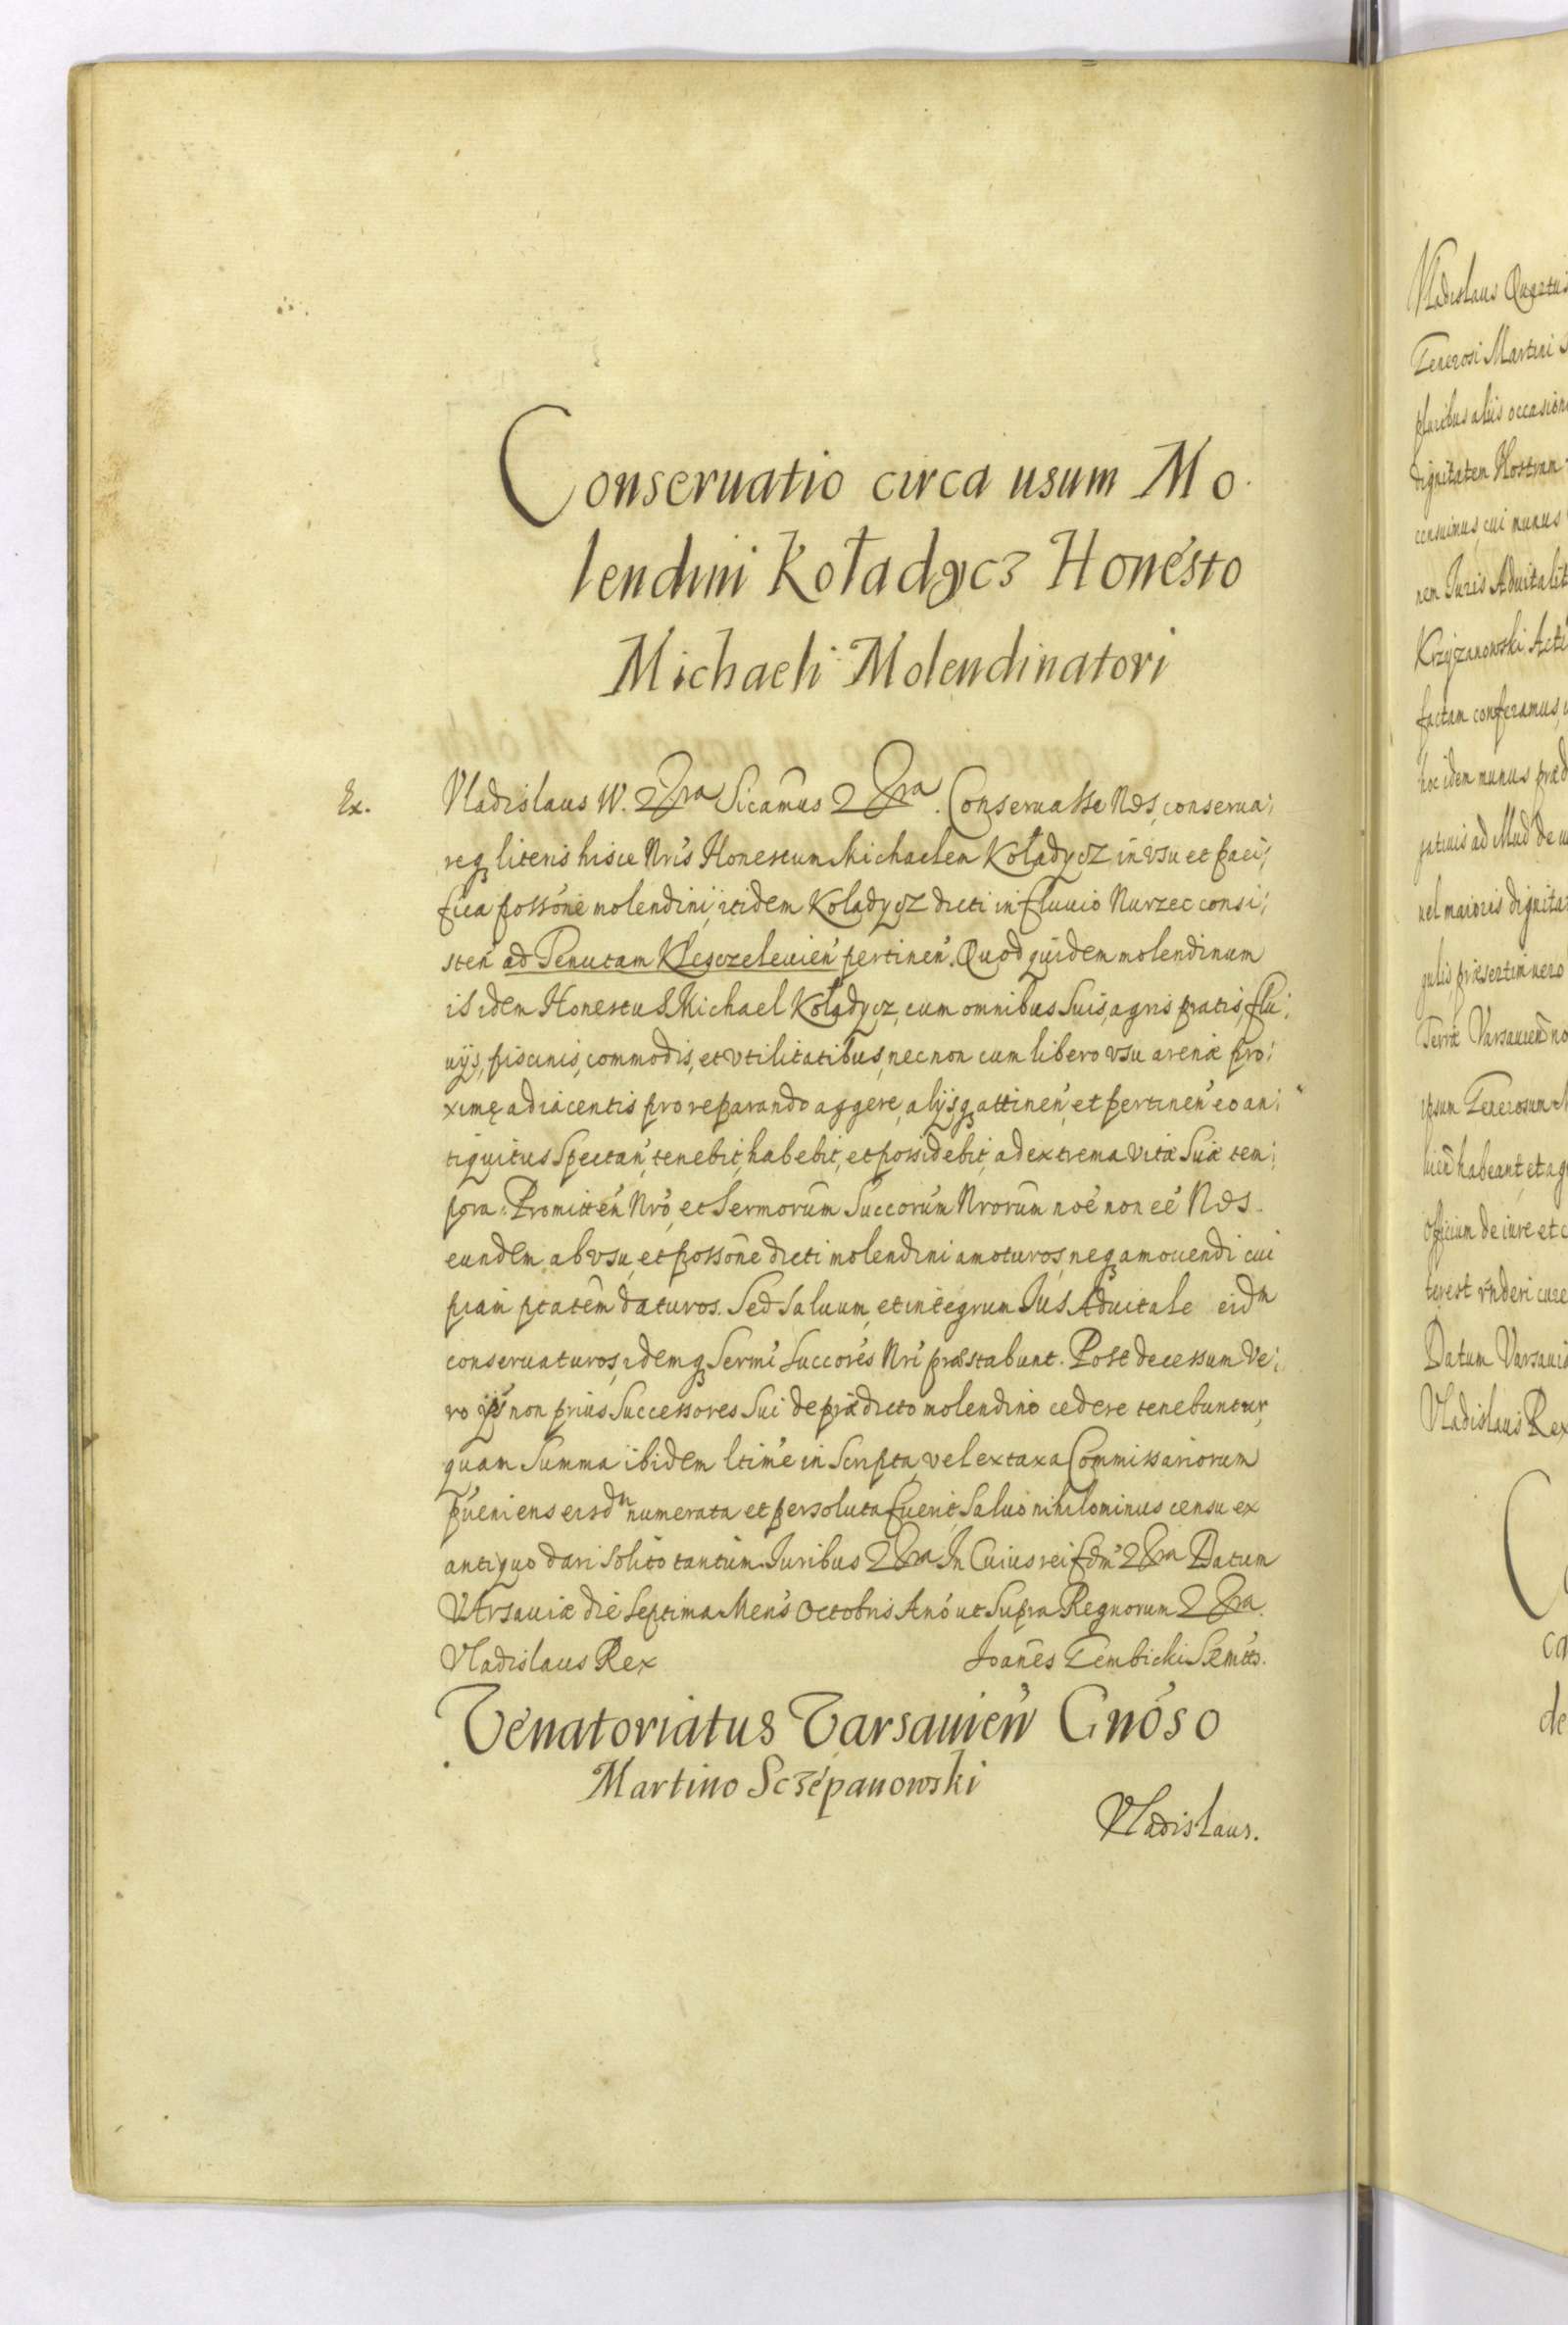 Conseruatio circa usum Mo
lendini Koładycz Honesto
Michaeli Molendinatori
Ex.
Vladislaus IV. Sicamus Conseruasse Nos, conserua:
req literis hisce Nris Honestum Michaelem Koładycz in vsu et paci:
fica possone molendini, itidem Koladycz dicti in fluuio Nurzec consi:
sten ad Tenutam Klesczeleuien pertinen. Quod quidem molendinum
is idem Honestus Michael Koładycz, cum omnibus suis, agris pratis, flu:
uijs, piscinis, commodis, et vtilitatibus, nec non cum libero vsu arenæ pro:
ximę adiacentis pro reparando aggere, alijsq attinen, et pertinen eo an:
tiquitus Spectan, tenebit, habebit, et possidebit, ad extrema vitæ Suæ tem:
pora. Promitten Nro, et Sermorum Succorum Nrorum noe non ee Nos
eundem ab vsu, et possone dicti molendini amoturos, neq amouendi cui
piam ptatem daturos. Sed Saluum, et integrum Ius Aduitale eidm
conseruaturos, idemq Sermi Succores Nri præstabunt. Post decessum ve:
ro non prius Successores Sui de prædicto molendino cedere tenebuntur,
quam Summa ibidem ltime in Scripta, vel ex taxa Commissariorum
pueniens eisdm numerata et persoluta fuerit, Saluo nihilominus censu ex
antiquo dari Solito tantum. Iuribus In Cuius rei fdm Datum
VArsauiæ die Septima Mens Octobris Ano ut Supra Regnorum
Vladislaus Rex Joanes Gembicki
Venatoriatus Varsauien Gnoso
Martino Sczepanowski
Vladislaus.
Vladislaus Quartus
Generosi Martini
pluribus aliis occasion
dignitatem Nostram
censuimus, cui munus
nem Iuris Aduitalit
Krzyczanowski
factam conferamus,
hoc idem munus præd
gatiuis ad illud de
uel maioris dignita
gulis præsertim uero
Terræ Varsauien no
ipsum Generosum
habeant, et
Officium de iure et
terest
Datum Varsauiæ
Vladislaus Rex
C
ca
de